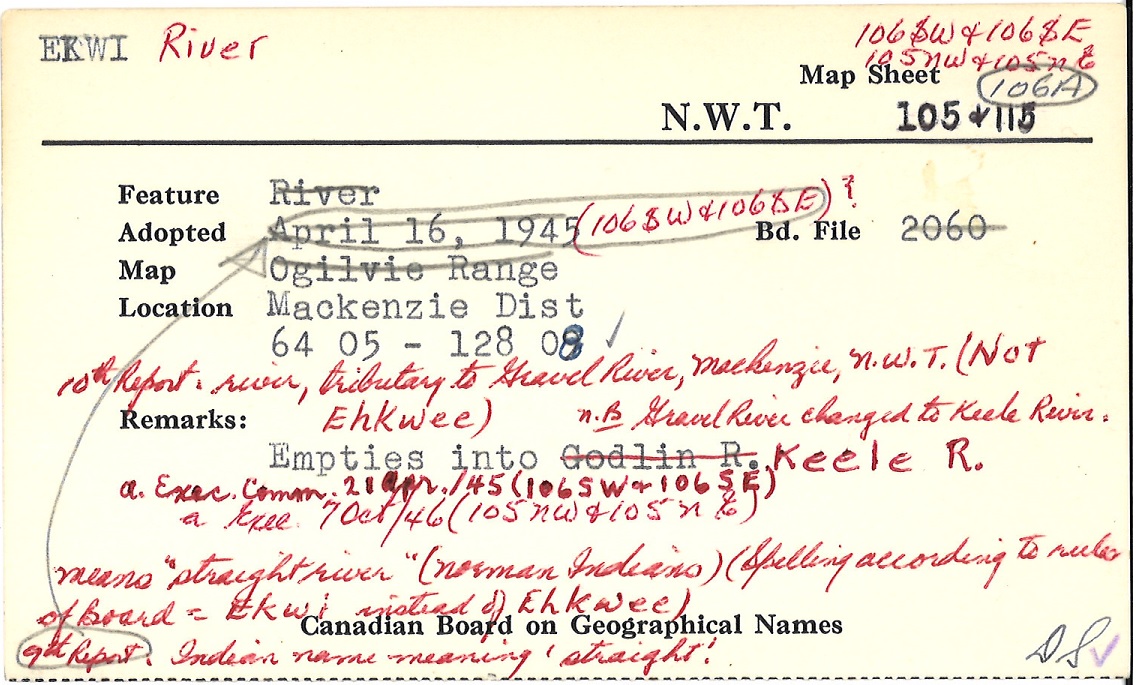 EKWI River
106SW & 106SE
105NW & 105NE
Map Sheet
106A
N.W.T. 105 & 115
Feature River
Adopted April 16, 1945 (106SW & 106SE)? Bd. File 2060
Map Ogilvie Range
Location Mackenzie Dist
64 05 - 128 08 ✓
10th Report: river, tributary to Gravel River, Mackenzie, N.W.T. (Not
Remarks: Ehkwee) N.B Gravel River changed to Keele River.
Empties into Godlin R. Keele R.
a. Exec. Comm. 21 Apr./45 (106SW & 106SE)
a Exec 7 Oct/46 (105NW & 105NE)
means "straight river" (Norman Indians) (Spelling according to rules
of Board = Ekwi instead of Ehkwee)
Canadian Board on Geographical Names
9th Report. Indian name meaning 'straight'.
✓